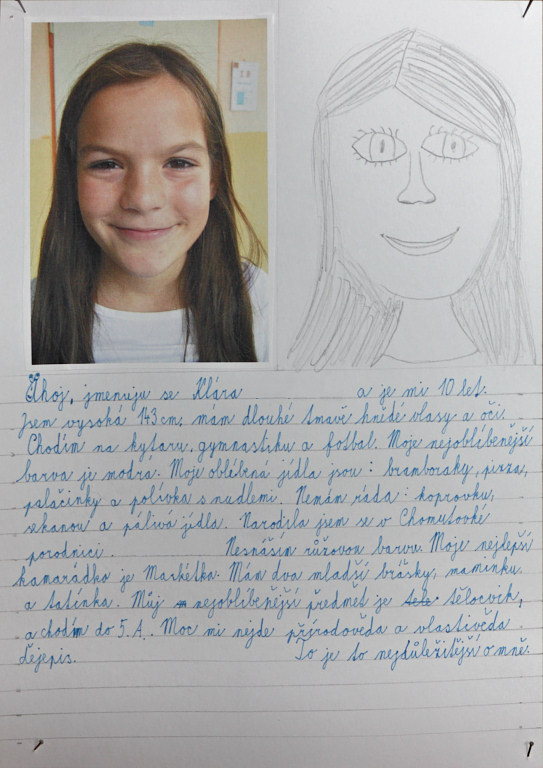 Ahoj, jmenuju se Klára a je mi 10 let.
Jsem vysoká 143 cm, mám dlouhé tmavě hnědé vlasy a oči.
Chodím na kytaru, gymnastiku a fotbal. Moje nejoblíbenější
barva je modrá. Moje oblíbená jídla jsou: bramboraky, pizza,
palačinky a polívka s nudlemi. Nemám ráda: koprovku,
sekanou a pálivá jídla. Narodila jsem se v Chomutovké
porodnici. Nesnáším růžovou barvu. Moje nejlepší
kamarádka je Markétka. Mám dva mladší brášky, maminku
a tatínka. Můj nejoblíbenější předmět je tělocvik,
a chodím do 5.A. Moc mi nejde přírodověda a vlastivěda
Dějepis. To je to nejdůležitější o mně.